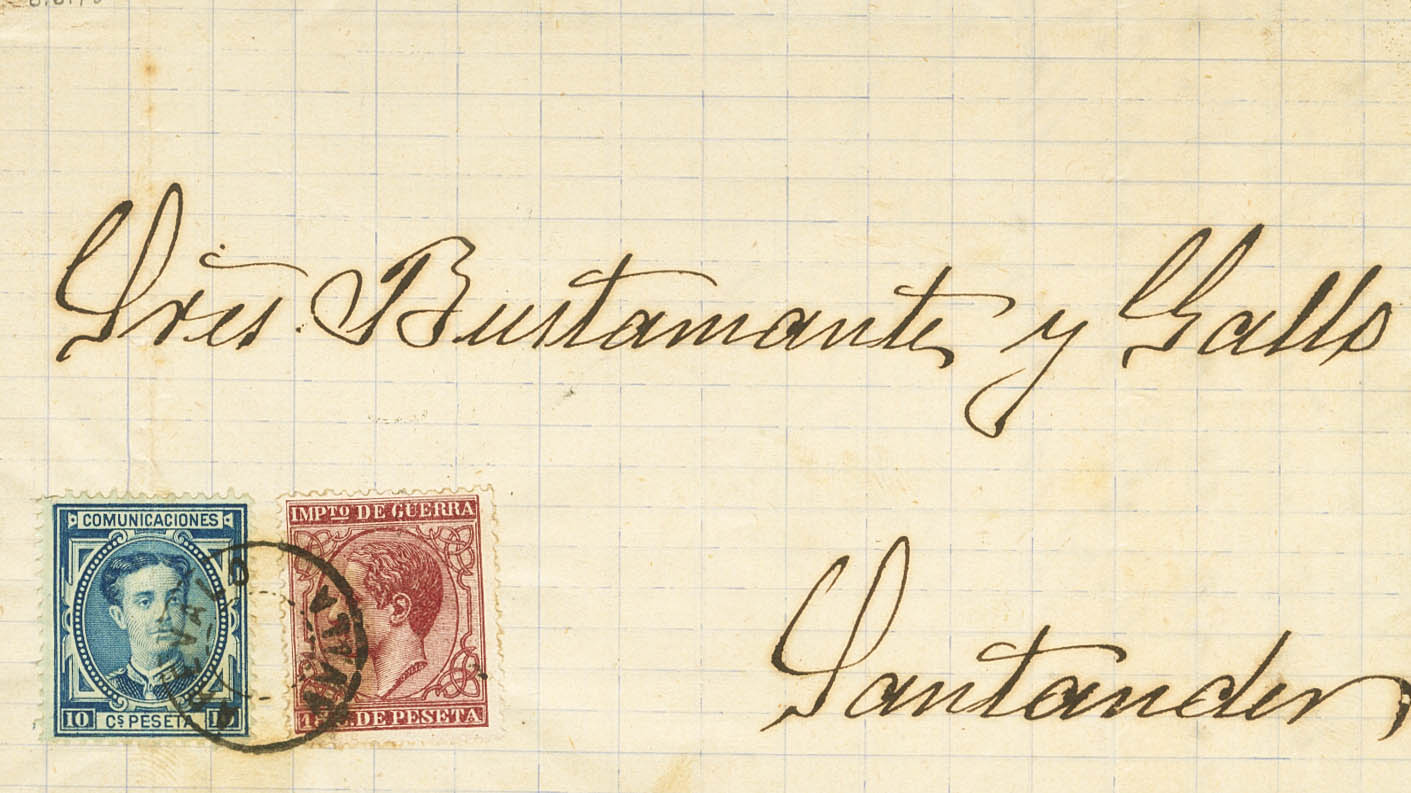 Sres. Bustamante y Gallo
Santander
COMUNICACIONES
10 Cs PESETA 10
IMPTO DE GUERRA
15 Cs DE PESETA
AVILA